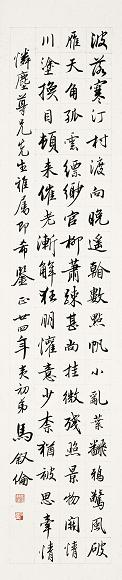 波落寒汀村渡向晚遙看數點帆小亂葉翻鴉驚風破
雁天角孤雲縹緲官柳蕭疎甚尚挂微殘照景物關情
川塗換目頓來催老漸解狂朋懽意少奈猶被思牽情
憐塵尊兄先生雅屬即希鑒正廿四年夷初弟馬敘倫